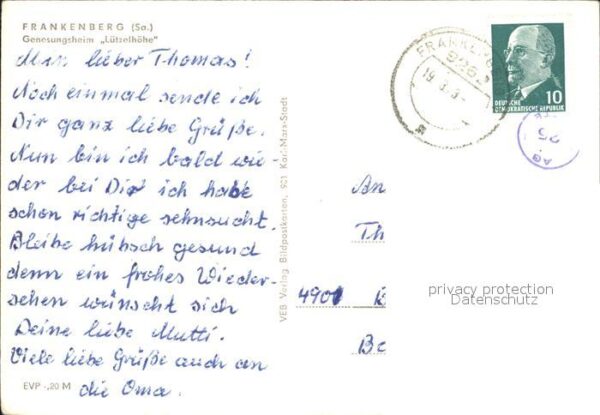 FRANKENBERG (Sa.)
Genesungsheim „Lützelhöhe"
Mein lieber Thomas!
Noch einmal sende ich
Dir ganz liebe Grüße.
Nun bin ich bald wie-
der bei Dir ich habe
schon richtige sehnsucht.
Bleibe hübsch gesund
denn ein frohes Wieder-
sehen wünscht sich
Deine liebe Mutti.
Viele liebe Grüße auch an
die Oma.
EVP -,20 M
VEB Verlag Bildpostkarten, 901 Karl-Marx-Stadt
10
DEUTSCHE
DEMOKRATISCHE REPUBLIK
An
Th
4901
Be
privacy protection
Datenschutz